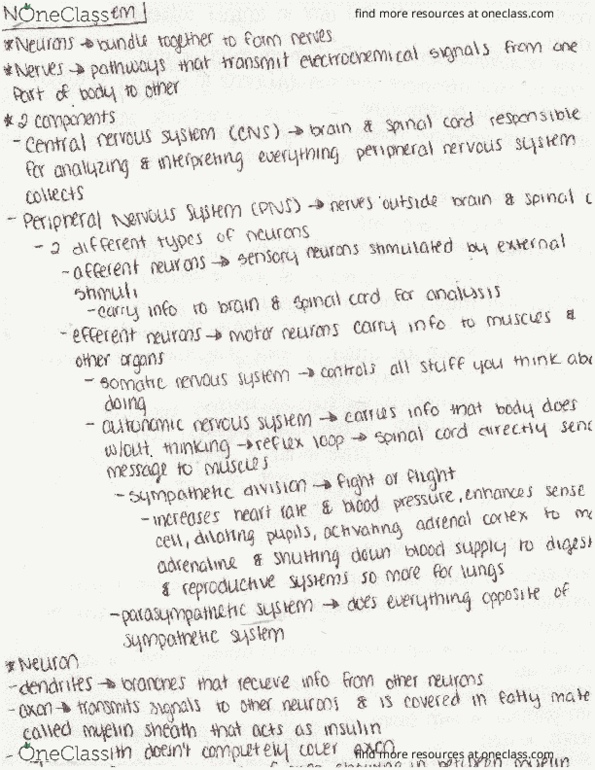 N OneClass em
find more resources at oneclass.com
*Neurons → bundle together to form nerves
*Nerves → pathways that transmit electrochemical signals from one
part of body to other
*2 components
- Central nervous system (CNS) → brain & spinal cord responsible
for analyzing & interpreting everything peripheral nervous system
collects
- Peripheral Nervous System (PNS) → nerves outside brain & spinal c
- 2 different types of neurons
- afferent neurons → sensory neurons stimulated by external
stimuli
- carry info to brain & spinal cord for analysis
- efferent neurons → motor neurons carry info to muscles &
other organs
- somatic nervous system → controls all stuff you think abo
doing
- autonomic nervous system → carries info that body does
w/out thinking → reflex loop → spinal cord directly send
message to muscles
- sympathetic division → fight or flight
- increases heart rate & blood pressure, enhances sense
cell, dilating pupils, activating adrenal cortex to m
adrenaline & shutting down blood supply to digest
& reproductive systems so more for lungs
- parasympathetic system → does everything opposite of
sympathetic system
*Neuron
- dendrites → branches that recieve info from other neurons
- axon → transmits signals to other neurons & is covered in fatty mate
called myelin sheath that acts as insulin
- OneClass ith doesn't completely cover axon
find more resources at oneclass.com
in between myelin